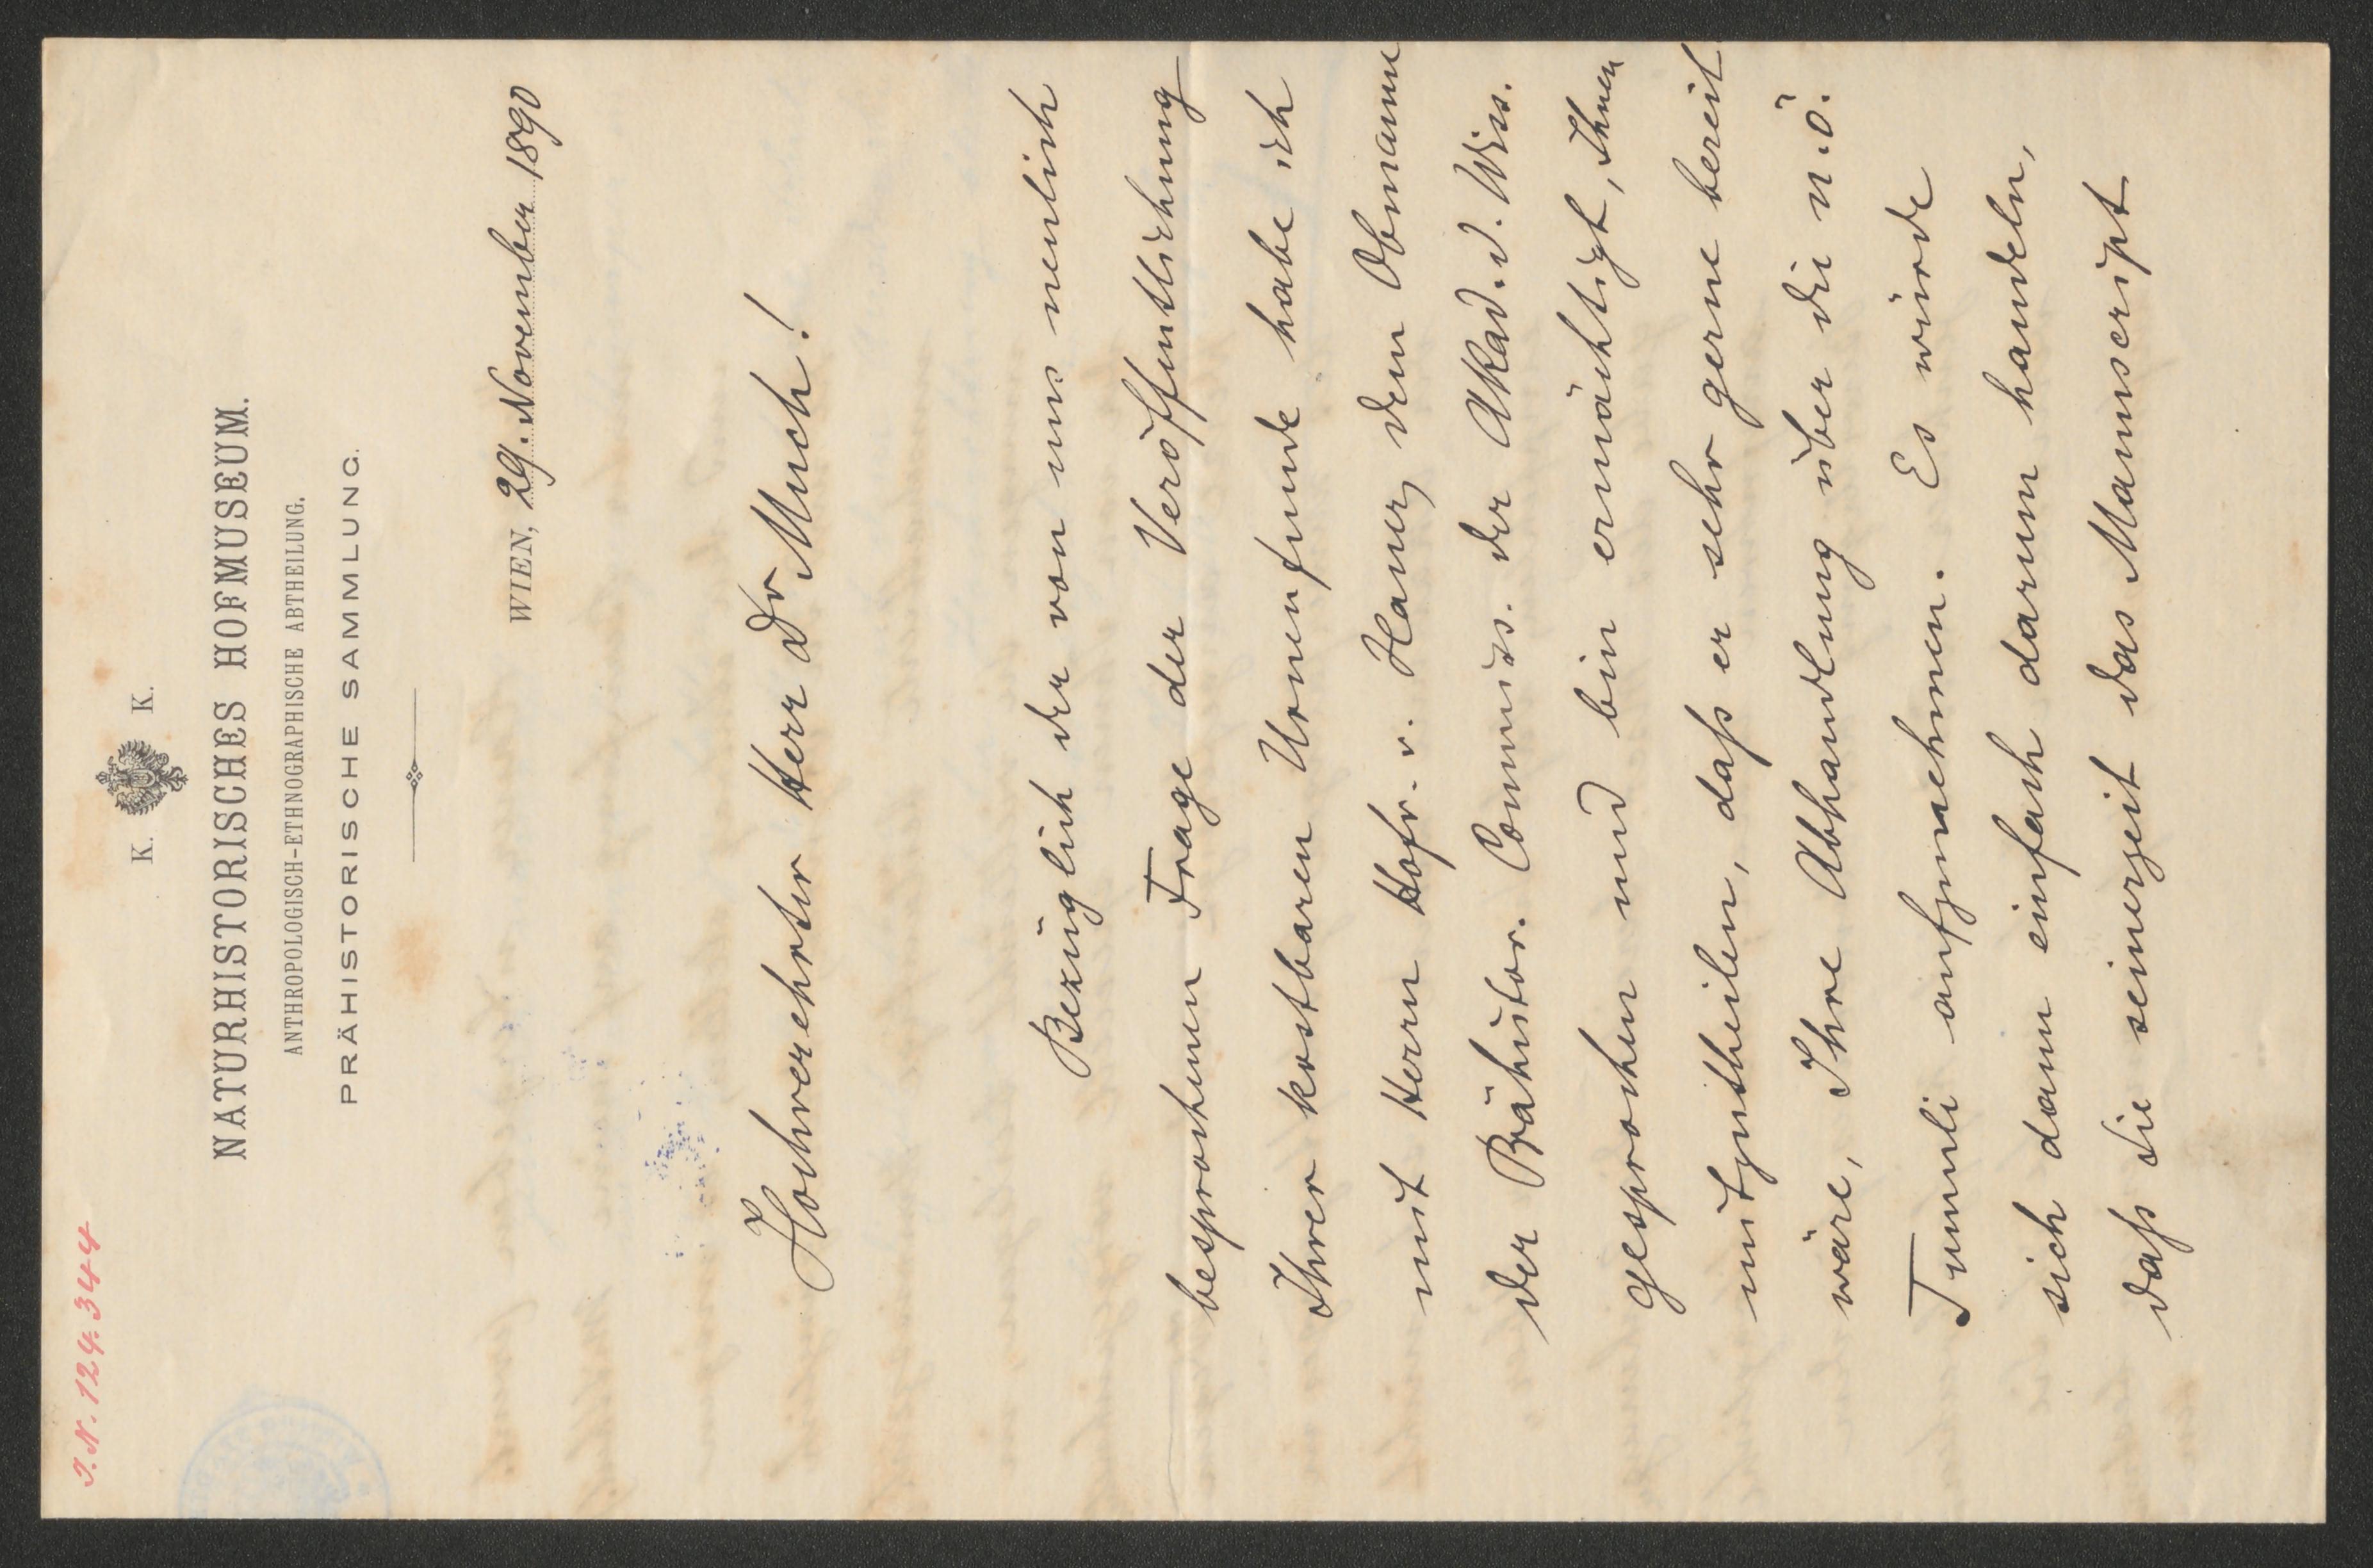 I. N. 124.344
K. K.
NATURHISTORISCHES HOFMUSEUM.
ANTHROPOLOGISCH-ETHNOGRAPHISCHE ABTHEILUNG.
PRÄHISTORISCHE SAMMLUNG.
WIEN, 29. November 1890
Hochverehrter Herr Dr Much!
Bezüglich der von uns neulich
besprochenen Frage der Veröffentlichung
Ihrer kostbaren Urnenfunde habe ich
mit Herrn Hofr. v. Hauer, dem Obmanne
der Prähistor. Commiss. der Akad. d. Wiss.
gesprochen und bin ermächtigt, Ihnen
mitzutheilen, daß er sehr gerne bereit
wäre, Ihre Abhandlung über die n.ö.
Tumuli aufzunehmen. Es würde
sich dann einfach darum handeln,
daß Sie seinerzeit das Manuscript